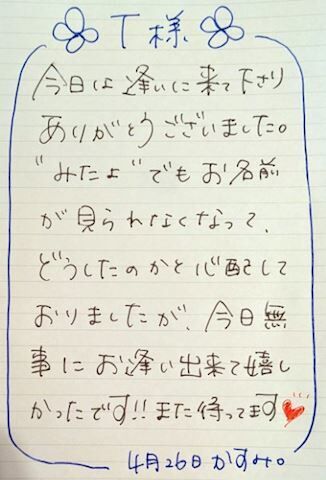 T様
今日は逢いに来て下さり
ありがとうございました。
"みたよ"でもお名前
が見られなくなって、
どうしたのかと心配して
おりましたが、今日無
事にお逢い出来て嬉し
かったです!!また待ってます
4月26日かすみ。